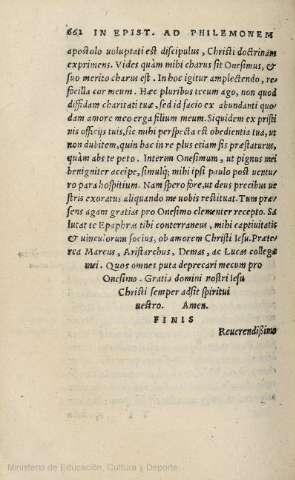 662 IN EPIST. AD PHILEMONEM
apostolo voluptati est discipulus, Christi doctrinam
exprimens. Vides quàm mihi charus sit Onesimus, &
suo merito charus est. In hoc igitur amplectendo, re
focilla cor meum. Haec pluribus tecum ago, non quod
diffidam charitati tuæ, sed id facio ex abundanti quo
dam amore meo erga filium meum. Siquidem ex pristi
nis officijs tuis, sic mihi perspecta est obedientia tua, ut
non dubitem, quin hac in re plus etiam sis præstaturus,
quàm abs te peto. Interim Onesimum, ut pignus mei
benigniter accipe, simulq; mihi ipsi paulo post uentu
ro para hospitium. Nam spero fore, ut deus precibus ue
stris exoratus aliquando me uobis restituat. Tum præ
sens agam gratias pro Onesimo clementer recepto. Sa
lutat te Epaphras tibi conterraneus, mihi captiuitatis
& uinculorum socius, ob amorem Christi Iesu. Præte
rea Marcus, Aristarchus, Demas, ac Lucas collegæ
mei. Quos omnes puta deprecari mecum pro
Onesimo. Gratia domini nostri Iesu
Christi semper adsit spiritui
uestro. Amen.
FINIS
Reuerendissimo
Ministerio de Educación, Cultura y Deporte